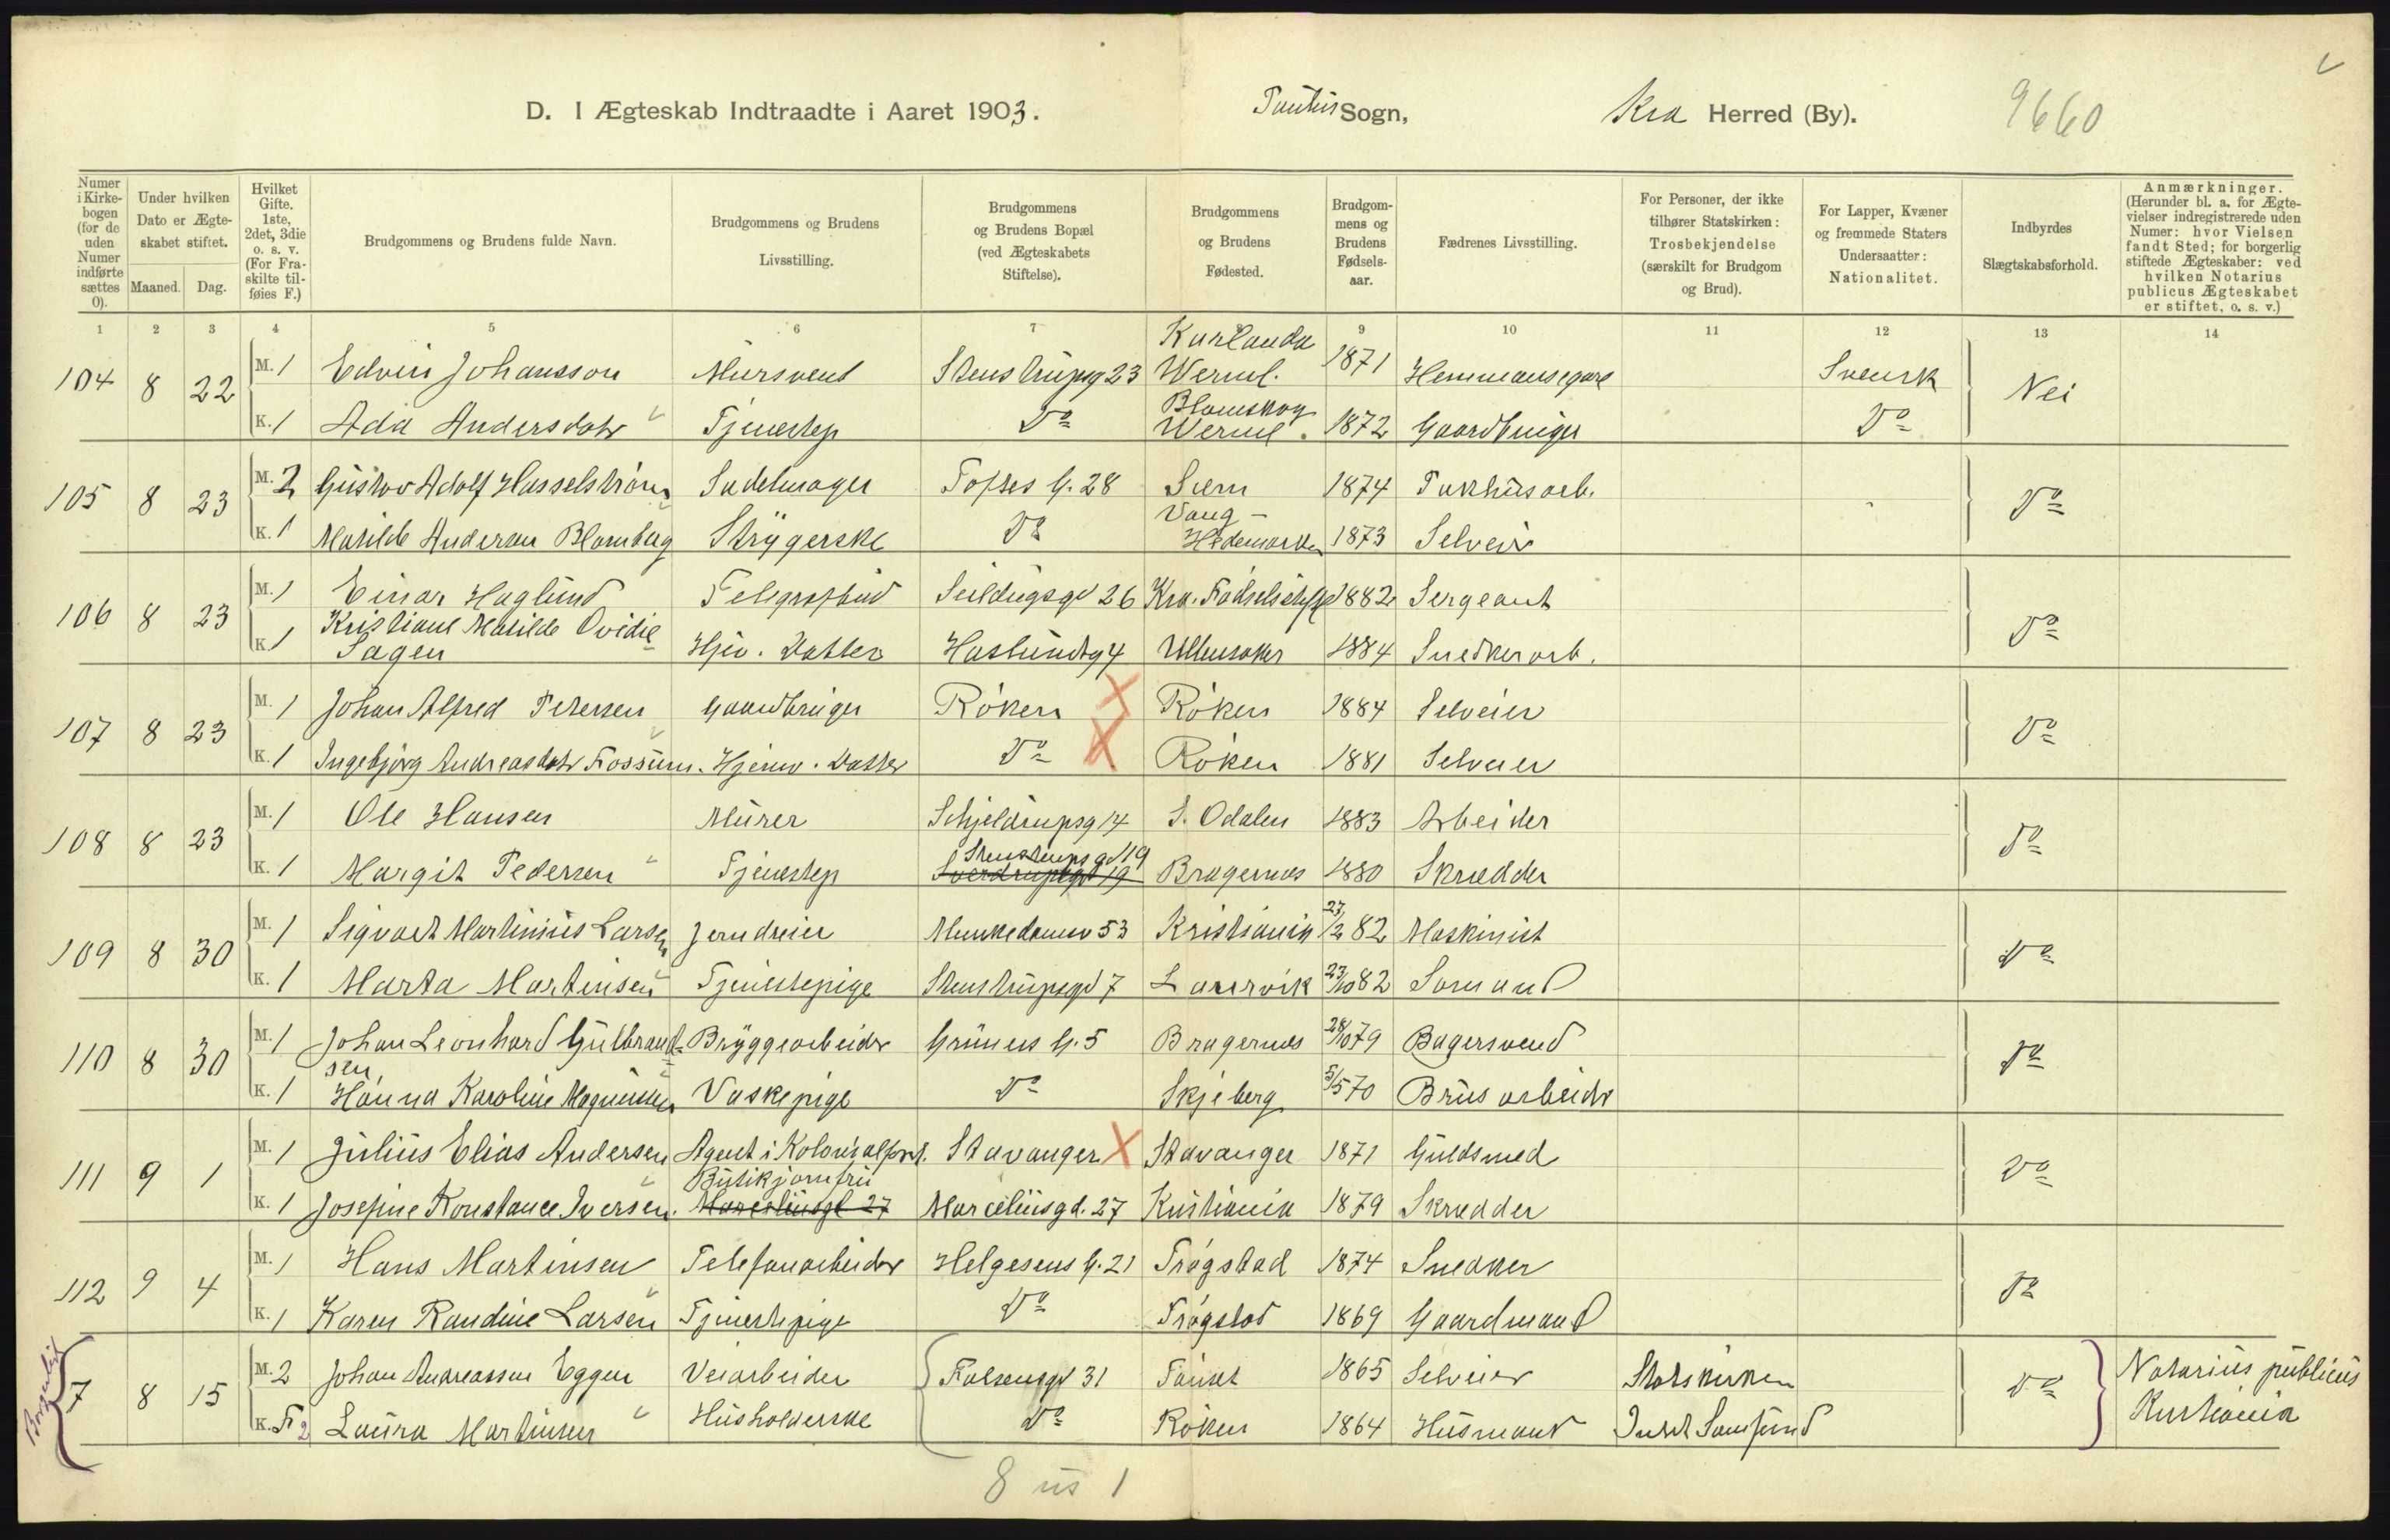 D. I Ægteskab Indtraadte i Aaret 1903. Paulus Sogn, Kra Herred (By). 9660
Numer i Kirkebogen (for de uden Numer indførte sættes 0).
Under hvilken Dato er Ægteskabet stiftet.
Maaned. Dag.
Hvilket Gifte. 1ste, 2det, 3die o. s. v. (For Fraskilte tilføies F.)
Brudgommens og Brudens fulde Navn.
Brudgommens og Brudens Livsstilling.
Brudgommens og Brudens Bopæl (ved Ægteskabets Stiftelse).
Brudgommens og Brudens Fødested.
Brudgommens og Brudens Fødselsaar.
Fædrenes Livsstilling.
For Personer, der ikke tilhører Statskirken: Trosbekjendelse (særskilt for Brudgom og Brud).
For Lapper, Kvæner og fremmede Staters Undersaatter: Nationalitet.
Indbyrdes Slægtskabsforhold.
Anmærkninger. (Herunder bl. a. for Ægtevielser indregistrerede uden Numer: hvor Vielsen fandt Sted; for borgerlig stiftede Ægteskaber: ved hvilken Notarius publicus Ægteskabet er stiftet, o. s. v.)
1 2 3 4 5 6 7 9 10 11 12 13 14
104 8 22 M. 1 Edvin Johansson Mursvend Stenstrupsg 23 Karlanda Werml. 1871 Hemmansegare Svensk Nei
K. 1 Ada Andersdotr Tjenestep Do Blomskog Werml. 1872 Gaardbruger Do
105 8 23 M. 2 Gustav Adolf Hasselstrøm Sadelmager Toftes G. 28 Sem 1874 Pakhusarb. Do
K. 1 Matilde Andersen Blomberg Strygerske Do Vang - Hedemarken 1873 Selveier
106 8 23 M. 1 Einar Haglund Telegrafbud Seildugsgd 26 Kra. Fødselsstift 1882 Sergeant Do
K. 1 Kristiane Matilde Ovidie Sagen Hjev. Datter Haslundsg 4 Ullensaker 1884 Snedkerarb.
107 8 23 M. 1 Johan Alfred Petersen Gaardbruger Røken X Røken 1884 Selveier Do
K. 1 Ingebjørg Andreasdotr Fossum. Hjemv. Datter Do X Røken 1881 Selveier
108 8 23 M. 1 Ole Hansen Murer Schjeldrupsg 14 S. Odalen 1883 Arbeider Do
K. 1 Margit Pedersen Tjenestep Stenstrupsgd 19 Sverdrupsgt 19 Bragernes 1880 Skrædder
109 8 30 M. 1 Sigvart Martinius Larsen Jerndreier Munkedamsv 53 Kristiania 27/2 82 Maskinist Do
K. 1 Marta Martinsen Tjenestepige Stenstrupsgd 7 Laurvik 23/10 82 Sømand
110 8 30 M. 1 Johan Leonhard Gulbrandsen Bryggearbeider Grüners G. 5 Bragernes 28/10 79 Bagersvend Do
K. 1 Hanna Karoline Magnussen Vaskepige Do Skjeberg 5/5 70 Brusarbeider
111 9 1 M. 1 Julius Elias Andersen Agent i Kolonialforr. Stavanger X Stavanger 1871 Guldsmed Do
K. 1 Josefine Konstance Iversen. Butikjomfru Marceliusgt 27 Marceliusgd. 27 Kristiania 1879 Skrædder
112 9 4 M. 1 Hans Martinsen Telefonarbeider Helgesens G. 21 Trøgstad 1874 Snedker Do
K. 1 Karen Randine Larsen Tjenestepige Do Trøgstad 1869 Gaardmand
Borgerligt 7 8 15 M. 2 Johan Andreassen Eggen Veiarbeider Falsensgd 31 Tønset 1865 Selveier Statskirken Do Notarius publicus Kristiania
K. F. 2 Laura Martinsen Husholderske Do Røken 1864 Husmand Samfund
8 us 1